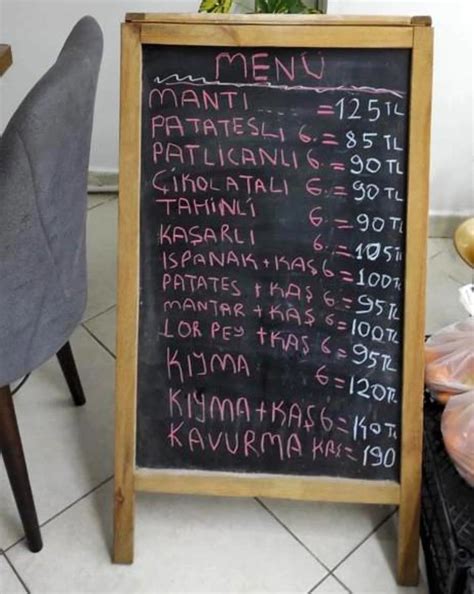 MENÜ
MANTI =125 TL
PATATESLİ G. = 85 TL
PATLICANLI G. = 90 TL
ÇİKOLATALI G. = 90 TL
TAHİNLİ G. = 90 TL
KAŞARLI G. = 105 TL
ISPANAK + KAŞ G = 100 TL
PATATES + KAŞ G = 95 TL
MANTAR + KAŞ G = 100 TL
LOR PEY + KAŞ G = 95 TL
KIYMA G = 120 TL
KIYMA + KAŞ G = 140 TL
KAVURMA KAŞ = 190